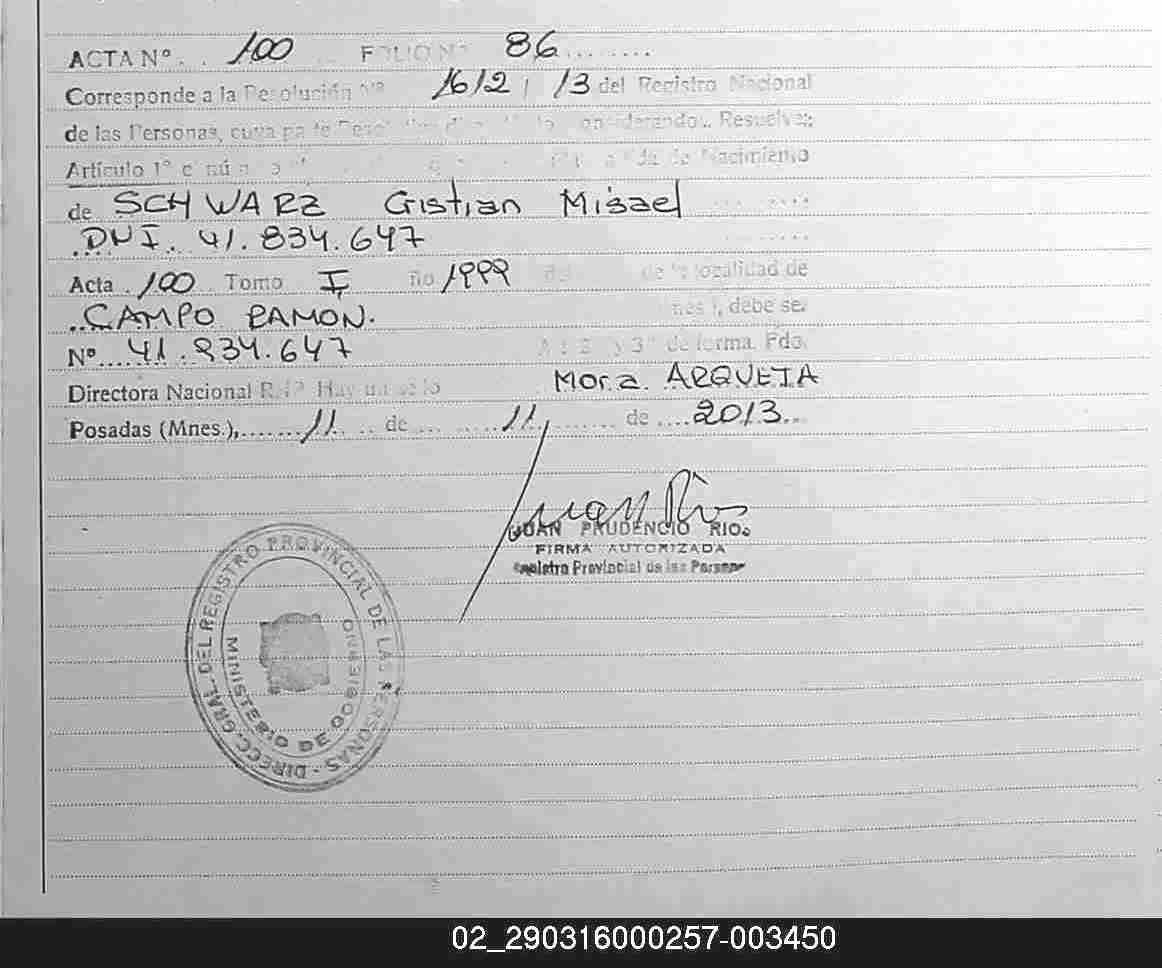 ACTA Nº 100 FOLIO Nº 86
Corresponde a la Resolución Nº 1612 / 13 del Registro Nacional
de las Personas, cuya parte considerando.. Resuelve:
Artículo 1º de Nacimiento
de SCHWARZ Cristian Misael
DNI. 41.834.647
Acta 100 Tomo I, año 1999 de la localidad de
CAMPO RAMON.
debe ser
Nº 41.834.647 y 3º de forma. Fdo.
Directora Nacional R.N.P. Hay un sello Mora ARQUETA
Posadas (Mnes.), 11 de 11 de 2013
JUAN PRUDENCIO RIOS
FIRMA AUTORIZADA
Registro Provincial de las Personas
DIRECC. GRAL. DEL REGISTRO PROVINCIAL DE LAS PERSONAS
MINISTERIO DE GOBIERNO
02_290316000257-003450